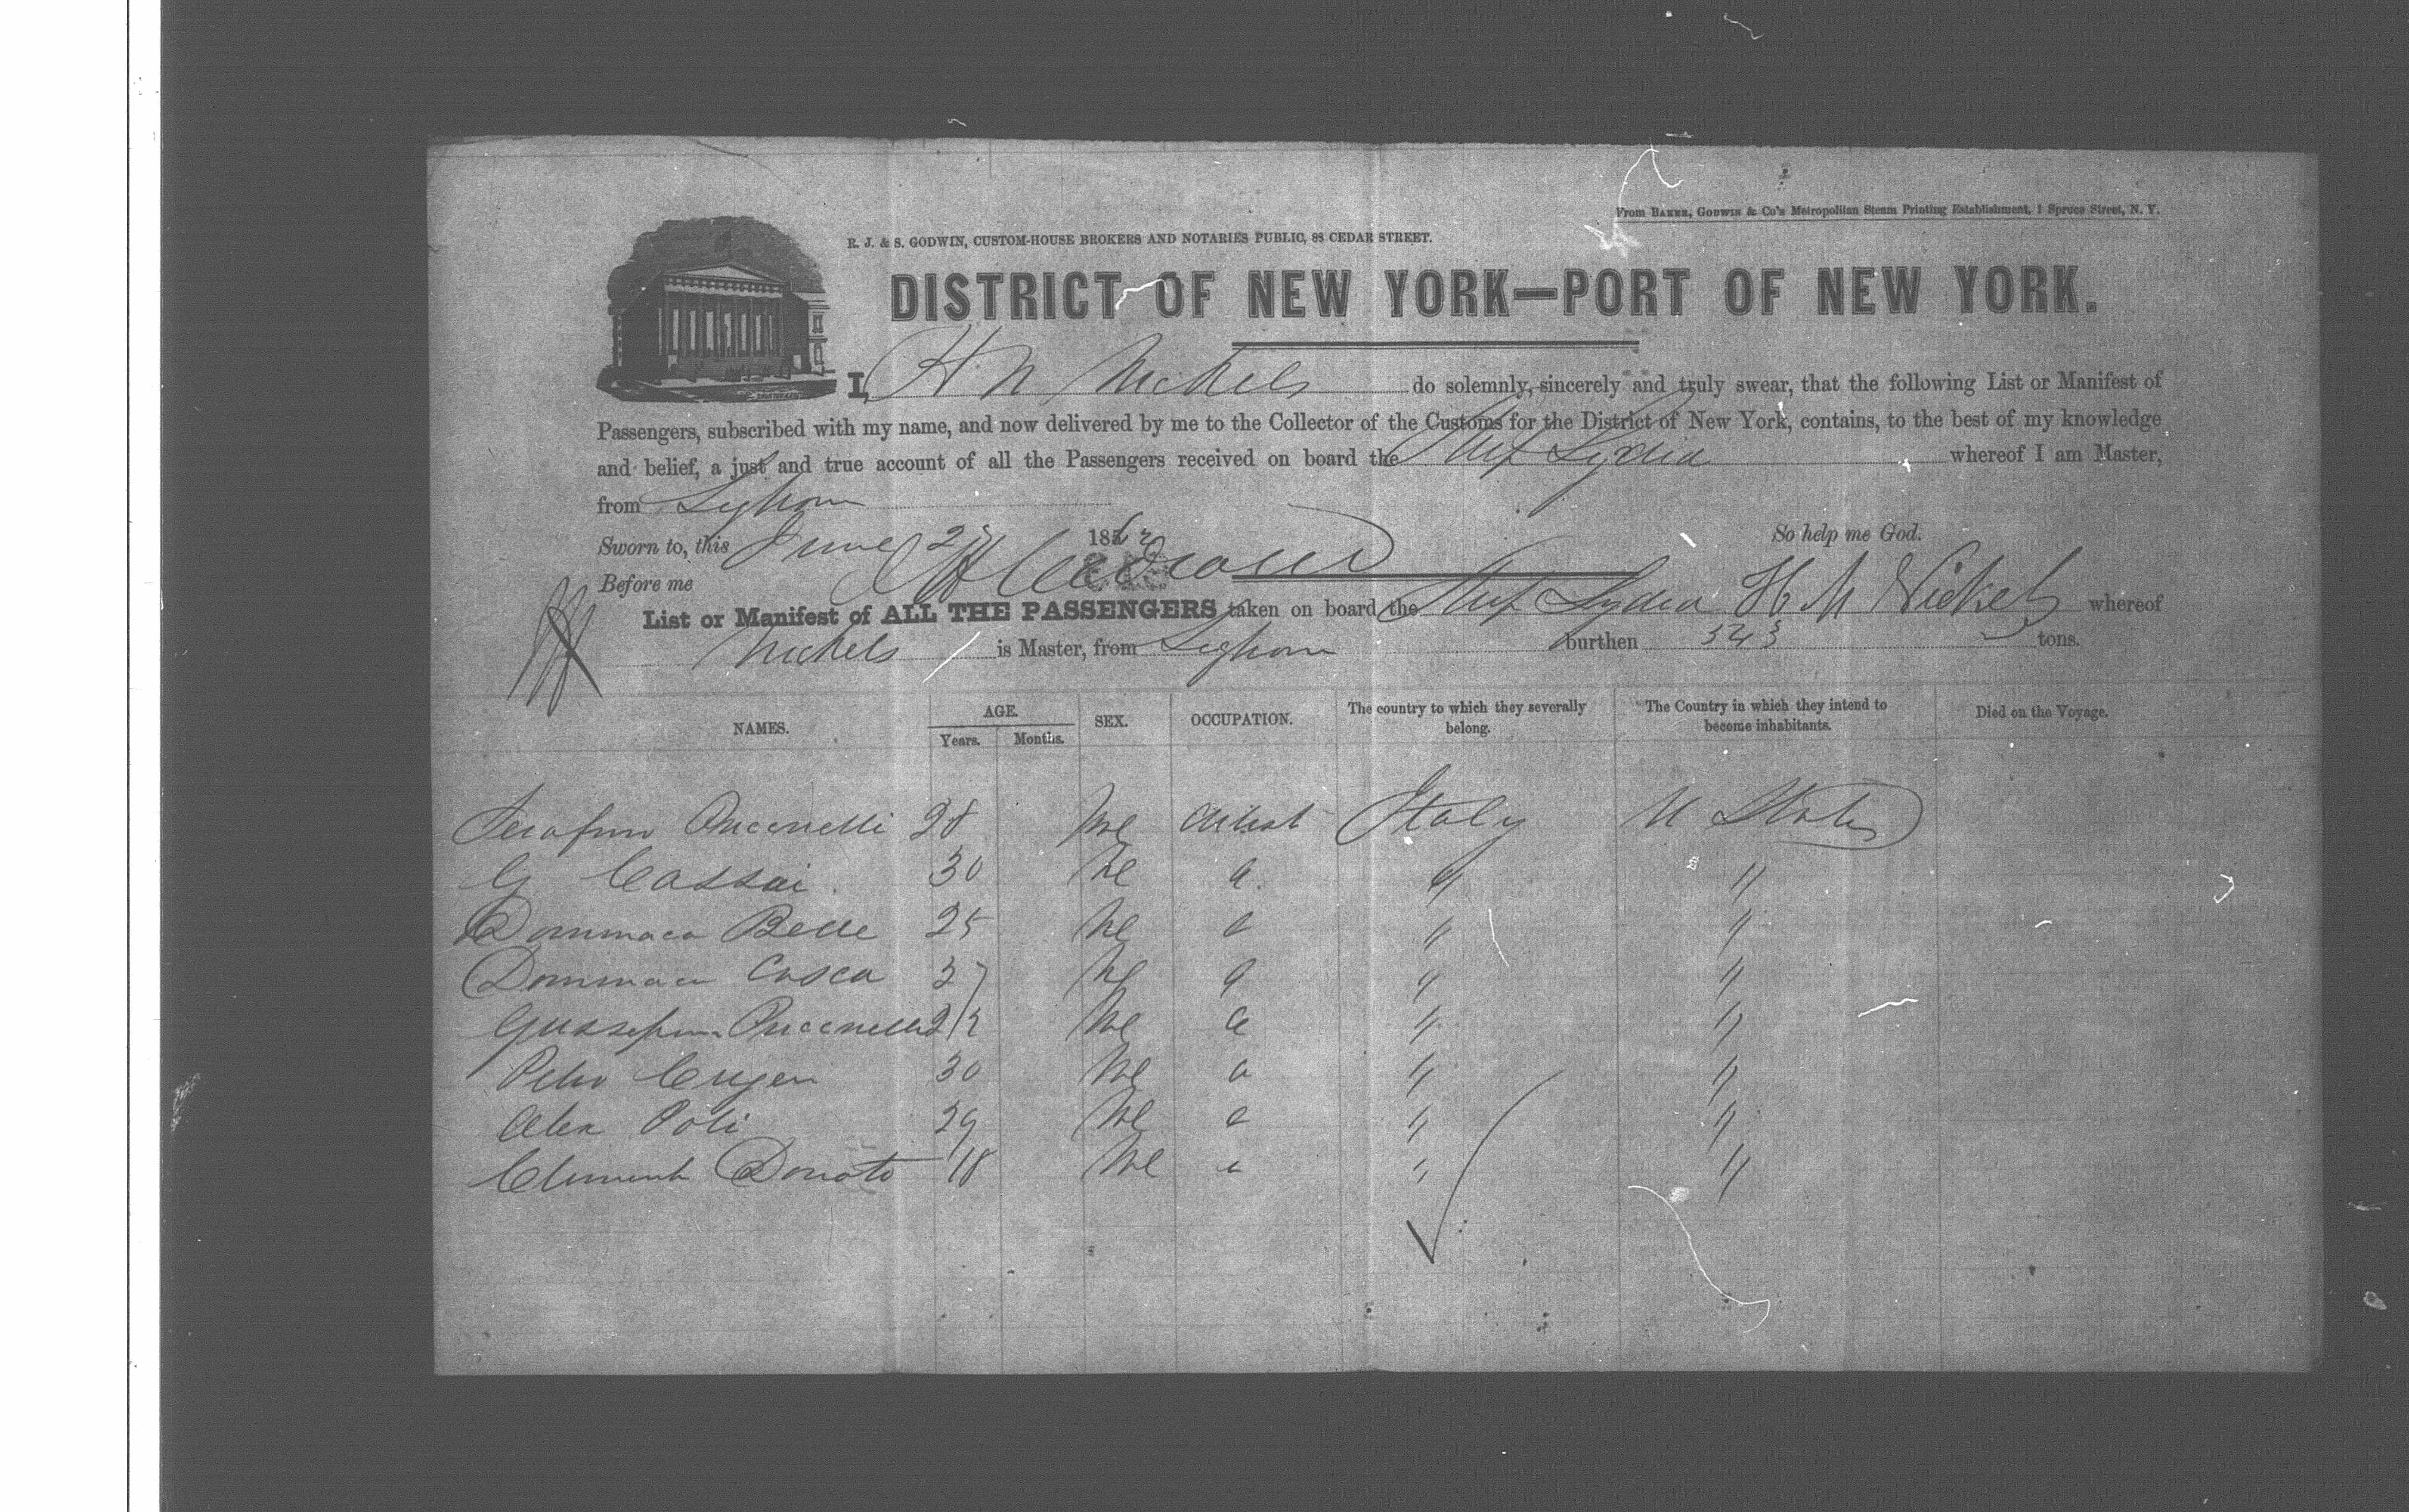 From BAKER, GODWIN & Co's Metropolitan Steam Printing Establishment, 1 Spruce Street, N. Y.
R. J. & S. GODWIN, CUSTOM-HOUSE BROKERS AND NOTARIES PUBLIC, 88 CEDAR STREET.
DISTRICT OF NEW YORK—PORT OF NEW YORK.
I, H N Nichels do solemnly, sincerely and truly swear, that the following List or Manifest of
Passengers, subscribed with my name, and now delivered by me to the Collector of the Customs for the District of New York, contains, to the best of my knowledge
and belief, a just and true account of all the Passengers received on board the Ship Lydia whereof I am Master,
from Leghorn
Sworn to, this June 25 1862 So help me God.
Before me
List or Manifest of ALL THE PASSENGERS taken on board the Ship Lydia H N Nichels whereof
Nichels is Master, from Leghorn burthen 543 tons.
NAMES. AGE. Years. Months. SEX. OCCUPATION. The country to which they severally belong. The Country in which they intend to become inhabitants. Died on the Voyage.
Serafino Puccinelli 28 Me Artist Italy U States
G Cassai 30 Me a " "
Dommaco Belle 25 Me a " "
Dommaco Casca 37 Me a " "
Puccinelli Me a " "
Petro 30 Me a " "
Alex Poli 29 Me a " "
Clement Donato 18 Me a " "